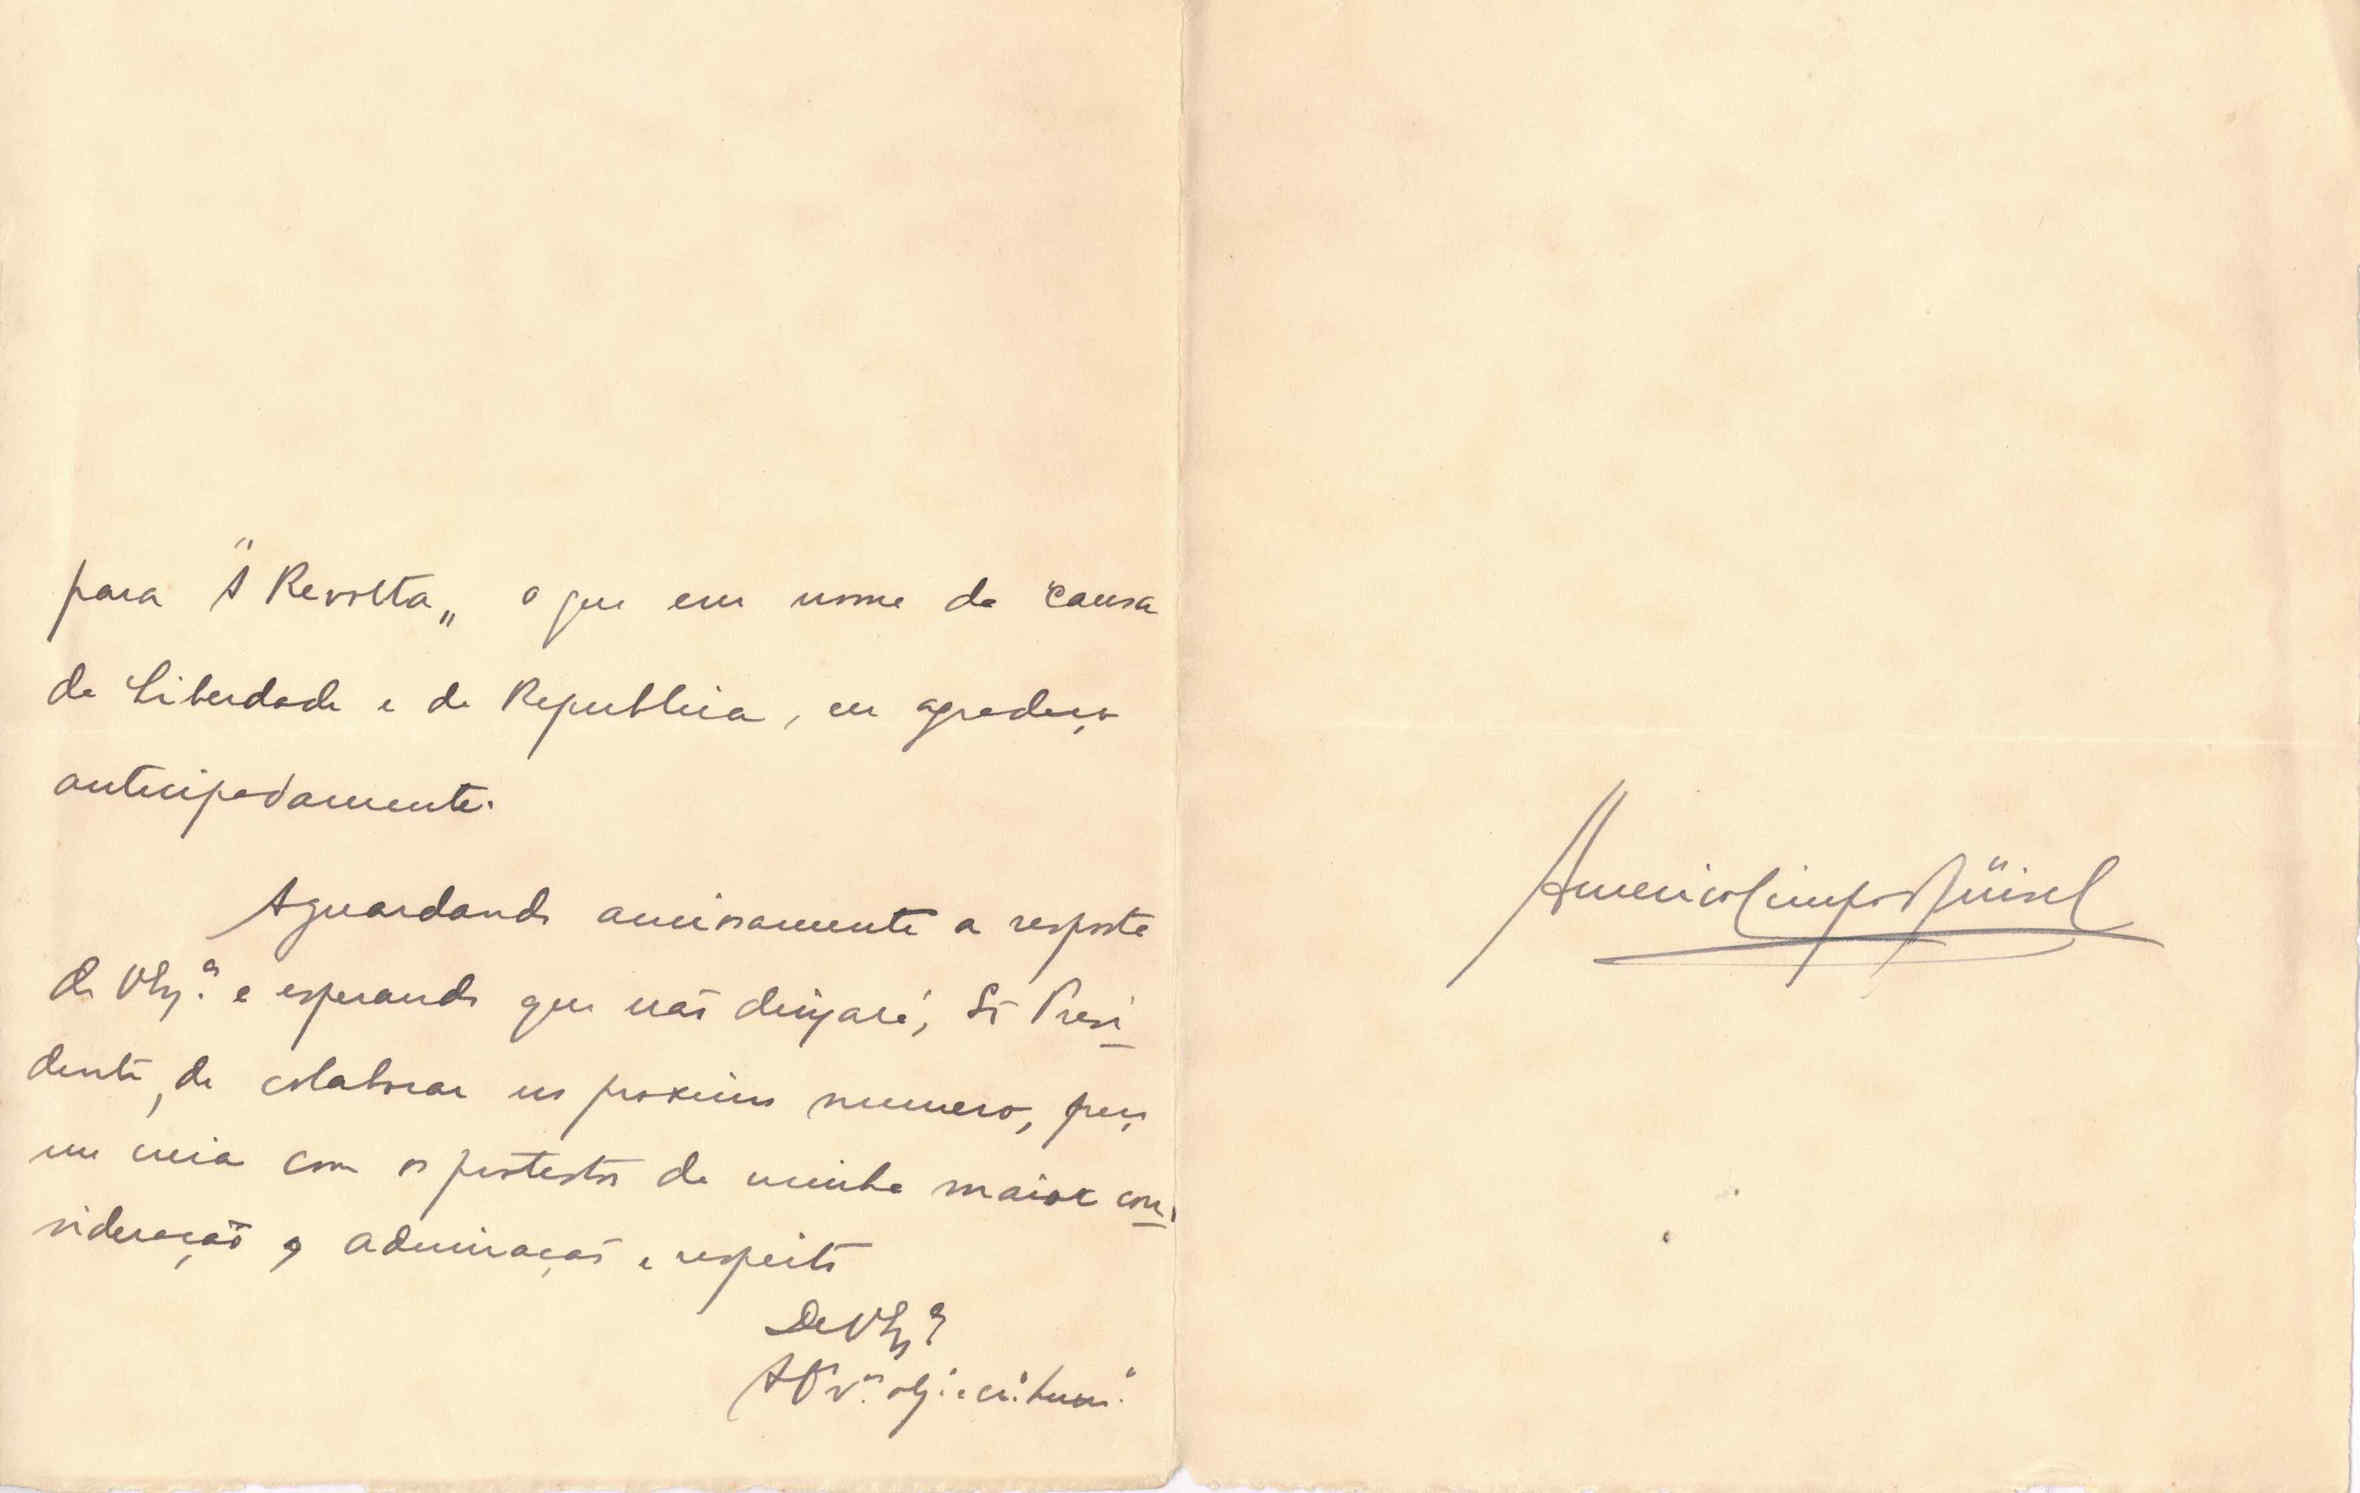 para "A Revolta„ o que em nome da causa
da Liberdade e da Republica, eu agradeço
antecipadamente.
Aguardando anciosamente a resposta
de V Ex.ª e esperando que não deixará, Sr Presi
dente, de colaborar no proximo numero, peço
me creia com os protestos da minha maior con
sideração, admiração e respeito
De V Ex.ª
Americo Limpo Büisel